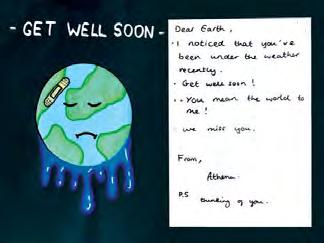 - GET WELL SOON -
Dear Earth,
· I noticed that you've
been under the weather
recently.
· Get well soon!
.. You mean the world to
me!
we miss you.
From,
Athena.
P.S
thinking of you.